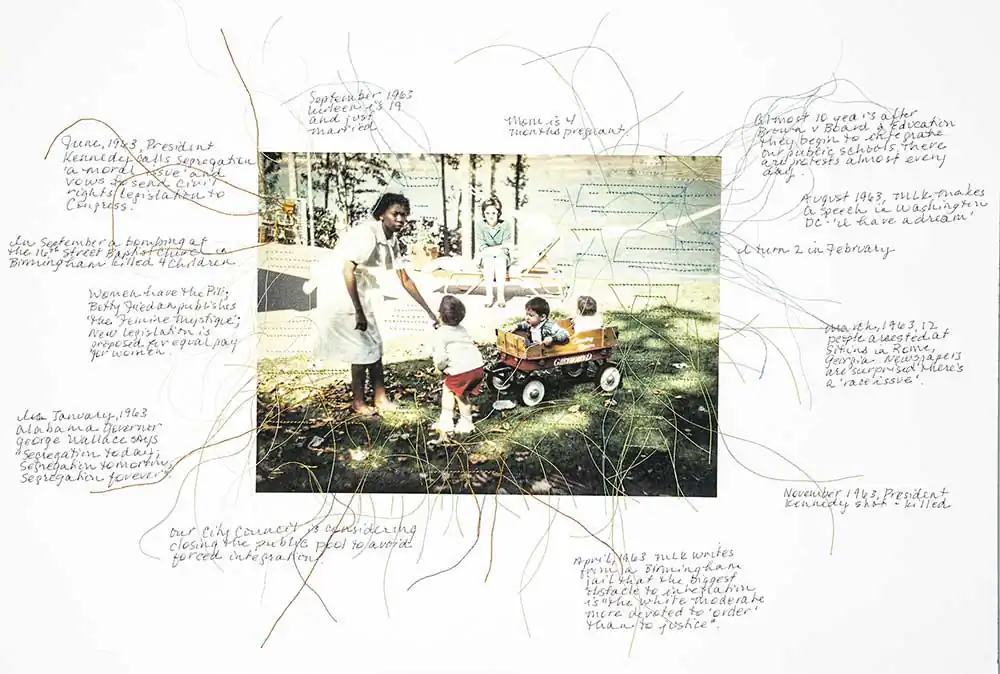 September 1963
is 19
and just
married
Mom is 4
months pregnant
Almost 10 years after
Brown v Board of Education
they begin to integrate
our public schools. There
are protests almost every
day.
June, 1963, President
Kennedy calls segregation
'a moral issue' and
vows to send civil
rights legislation to
Congress.
August 1963, MLK makes
a speech in Washington
DC - 'I have a dream'
In September a bombing at
the 16th Street Baptist Church in
Birmingham killed 4 children
I turn 2 in February
Women have the Pill;
Betty Friedan publishes
'the Feminine Mystique';
New legislation is
proposed for equal pay
for women.
March, 1963, 12
people arrested at
sitins in Rome,
Georgia. Newspapers
are surprised there's
a 'race issue'.
In January, 1963
Alabama Governor
George Wallace says
"Segregation today,
Segregation tomorrow,
Segregation forever".
November 1963, President
Kennedy shot - killed
Our City Council is considering
closing the public pool to avoid
forced integration.
April, 1963 MLK writes
from a Birmingham
jail that the biggest
obstacle to
is "the white moderate
more devoted to 'order'
than to justice".